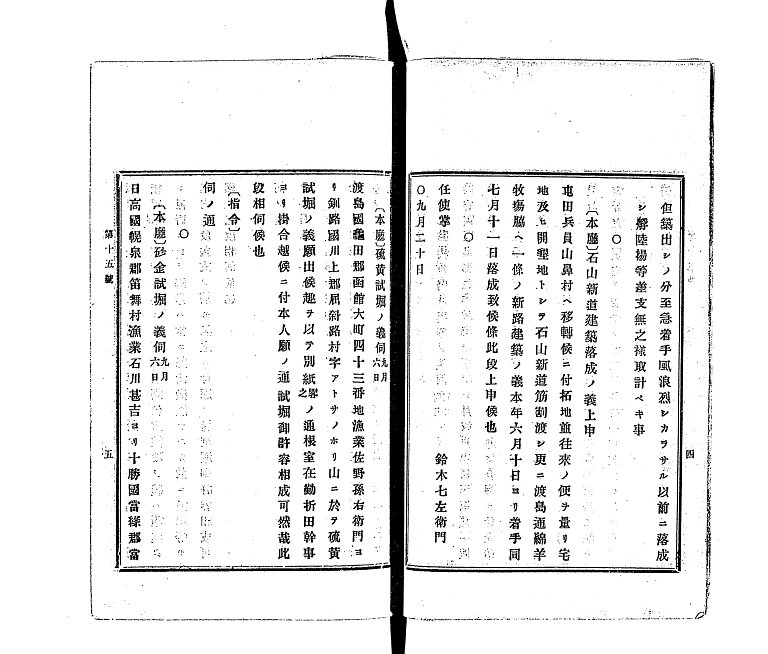 但築出シノ分至急着手風浪烈シカラサル以前ニ落成
シ解陸揚等差支無之様取計ベキ事
〔本廳〕石山新道建築落成ノ義上申
屯田兵員山鼻村ヘ移轉候ニ付拓地並往來ノ便ヲ量リ宅
地及ヒ開墾地トシテ石山新道筋割渡シ更ニ渡島通綿羊
牧塲脇ヘ一條ノ新路建築ノ義本年六月十日ヨリ着手同
七月十一日落成致候條此段上申候也
任使掌 鈴木七左衛門
〇九月二十日
四
〔本廳〕硫黄試堀ノ義伺 九月六日
渡島國龜田郡函館大町四十三番地漁業佐野孫右衛門ヨ
リ釧路國川上郡屈斜路村字アトサノホリ山ニ於テ硫黄
試堀ノ義願出候趣ヲ以テ別紙略之ノ通根室在勤折田幹事
ヨリ掛合越候ニ付本人願ノ通試堀御許容相成可然哉此
段相伺候也
〔指令〕
伺ノ通
〇
〔本廳〕砂金試堀ノ義伺 九月六日
日高國幌泉郡笛舞村漁業石川甚吉ヨリ十勝國當緣郡當
第十五號
五